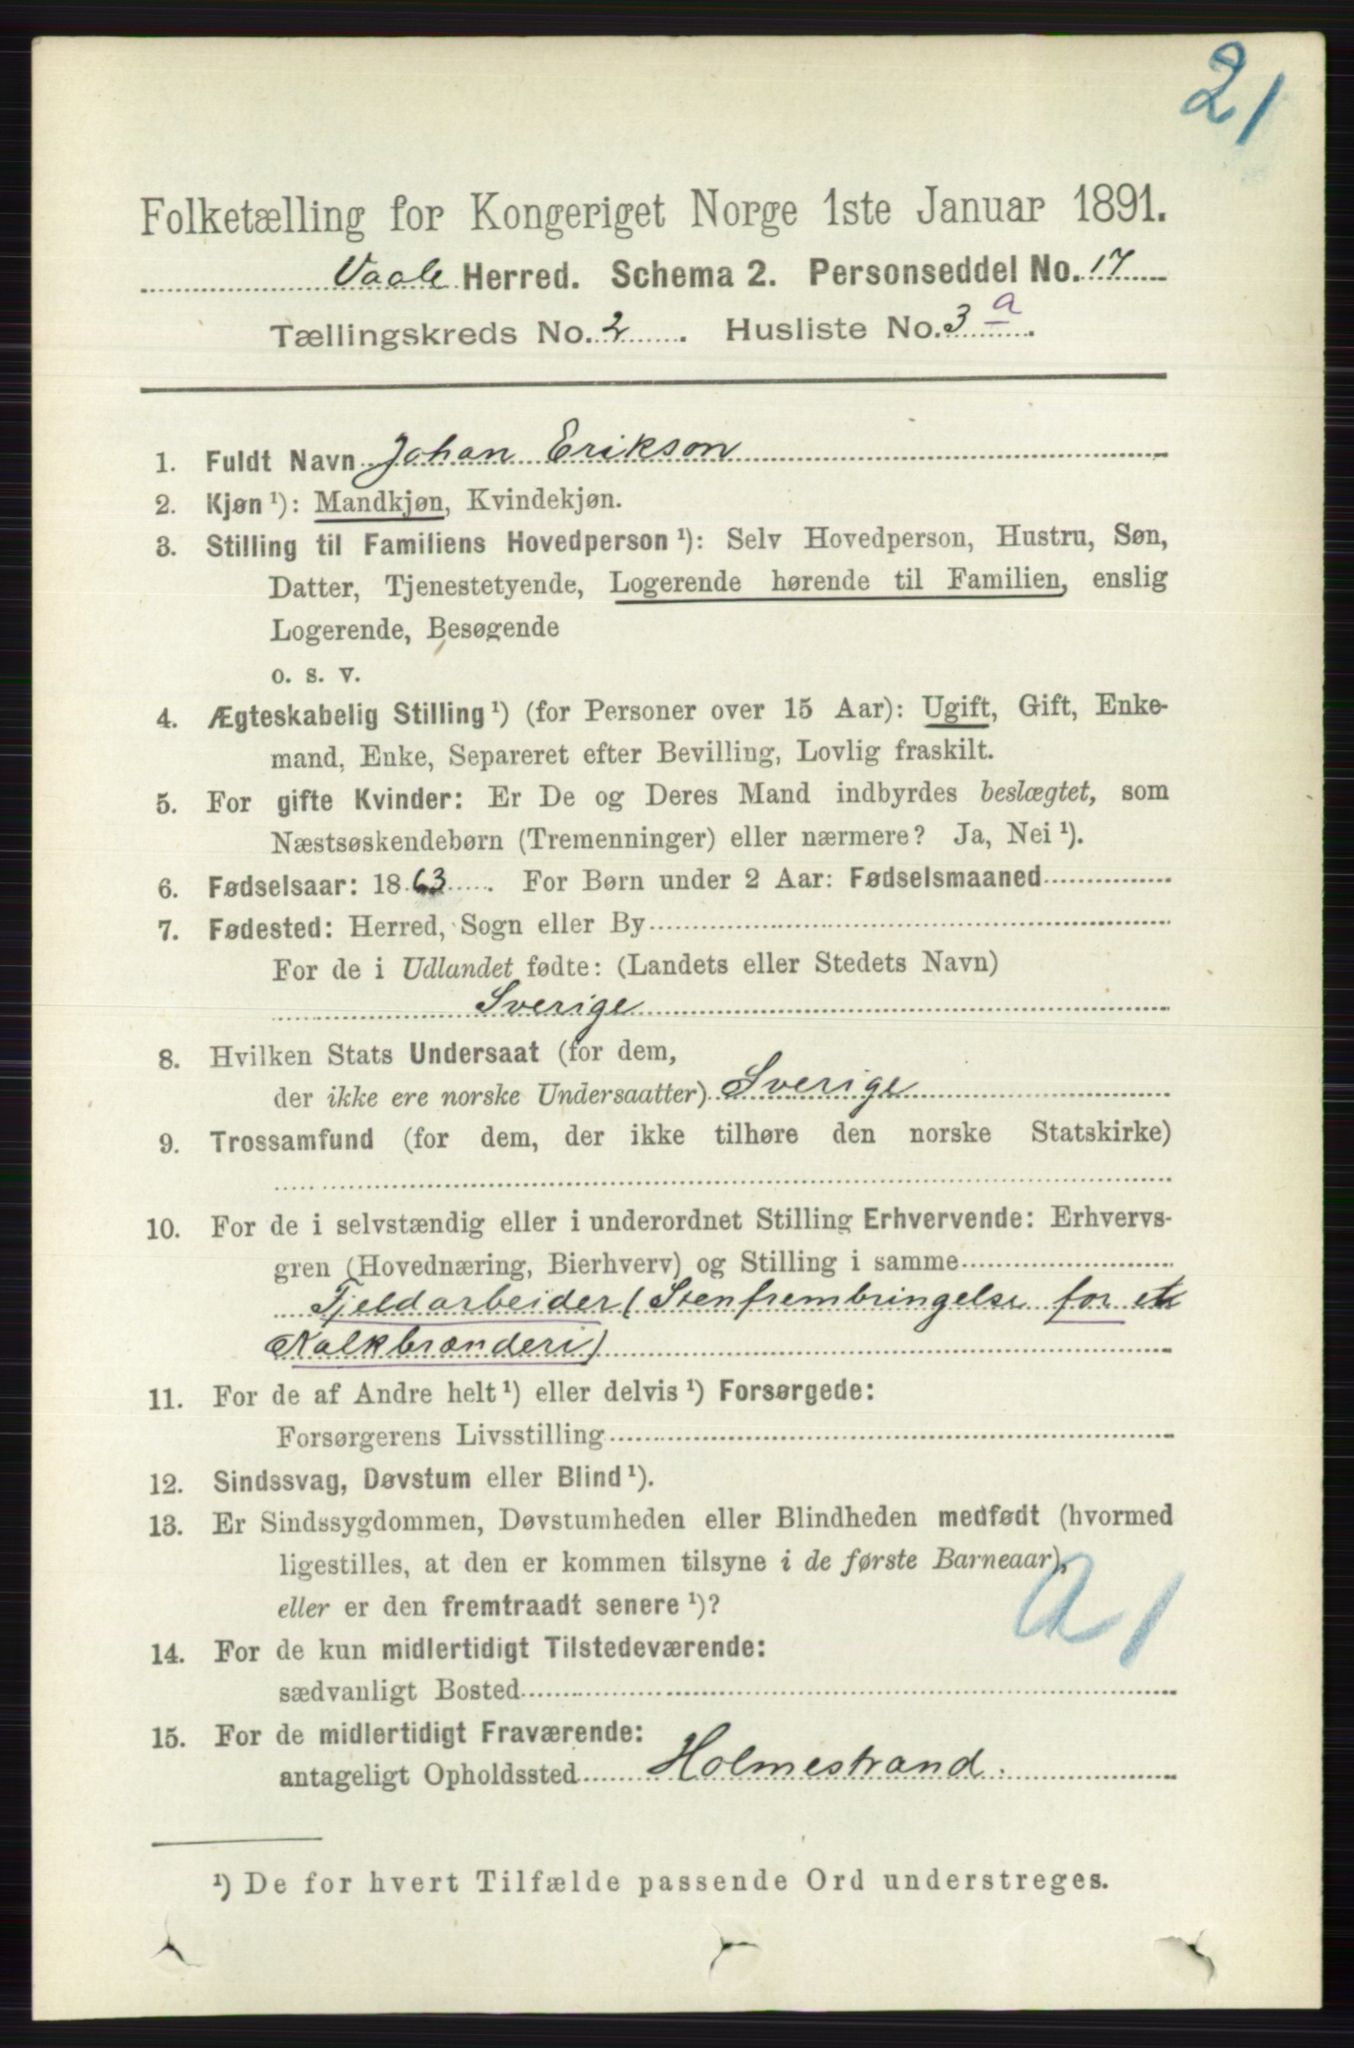 21
Folketælling for Kongeriget Norge 1ste Januar 1891.
Vaale Herred. Schema 2. Personseddel No. 17
Tællingskreds No. 2. Husliste No. 3 a.
1. Fuldt Navn Johan Erikson
2. Kjøn ¹): Mandkjøn, Kvindekjøn.
3. Stilling til Familiens Hovedperson ¹): Selv Hovedperson, Hustru, Søn,
Datter, Tjenestetyende, Logerende hørende til Familien, enslig
Logerende, Besøgende
o. s. v.
4. Ægteskabelig Stilling ¹) (for Personer over 15 Aar): Ugift, Gift, Enke-
mand, Enke, Separeret efter Bevilling, Lovlig fraskilt.
5. For gifte Kvinder: Er De og Deres Mand indbyrdes beslægtet, som
Næstsøskendebørn (Tremenninger) eller nærmere? Ja, Nei ¹).
6. Fødselsaar: 1863. For Børn under 2 Aar: Fødselsmaaned
7. Fødested: Herred, Sogn eller By
For de i Udlandet fødte: (Landets eller Stedets Navn)
Sverige
8. Hvilken Stats Undersaat (for dem,
der ikke ere norske Undersaatter) Sverige
9. Trossamfund (for dem, der ikke tilhøre den norske Statskirke)
10. For de i selvstændig eller i underordnet Stilling Erhvervende: Erhvervs-
gren (Hovednæring, Bierhverv) og Stilling i samme
Fjeldarbeider (Stenfrembringelse for et
Kalkbrænderi)
11. For de af Andre helt ¹) eller delvis ¹) Forsørgede:
Forsørgerens Livsstilling
12. Sindssvag, Døvstum eller Blind ¹).
13. Er Sindssygdommen, Døvstumheden eller Blindheden medfødt (hvormed
ligestilles, at den er kommen tilsyne i de første Barneaar),
eller er den fremtraadt senere ¹)?
a 1
14. For de kun midlertidigt Tilstedeværende:
sædvanligt Bosted
15. For de midlertidigt Fraværende:
antageligt Opholdssted Holmestrand.
¹) De for hvert Tilfælde passende Ord understreges.